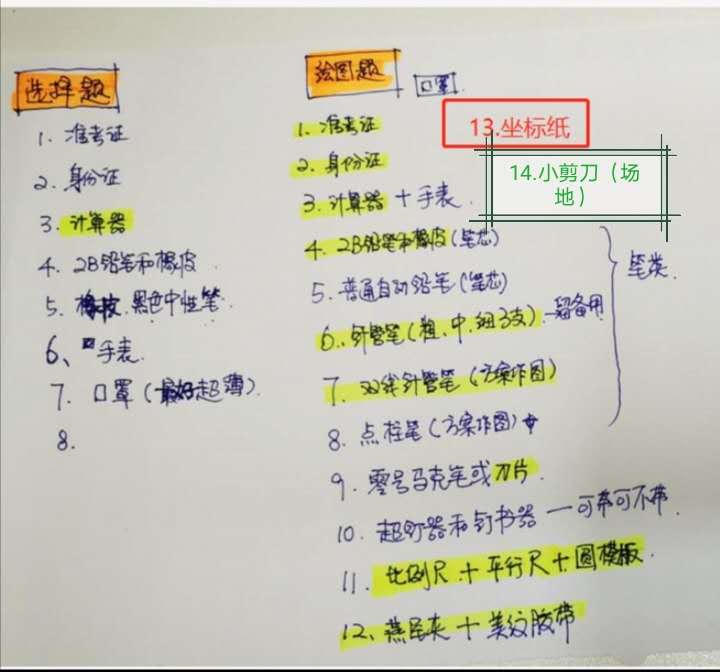 选择题
1. 准考证
2. 身份证
3. 计算器
4. 2B铅笔和橡皮
5. 黑色中性笔.
6、手表.
7. 口罩（最好超薄）.
8.
绘图题
口罩.
1. 准考证
2. 身份证
3. 计算器 + 手表.
4. 2B铅笔和橡皮（笔芯）
5. 普通自动铅笔（笔芯）
6. 针管笔（粗、中、细3支）—留备用
7. 双线针管笔（方案作图）
8. 点柱笔（方案作图）
笔类.
9. 零号马克笔或刀片.
10. 起钉器和钉书器 — 可带可不带.
11. 比例尺 + 平行尺 + 圆模板.
12、燕尾夹 + 美纹胶带
13.坐标纸
14.小剪刀（场
地）